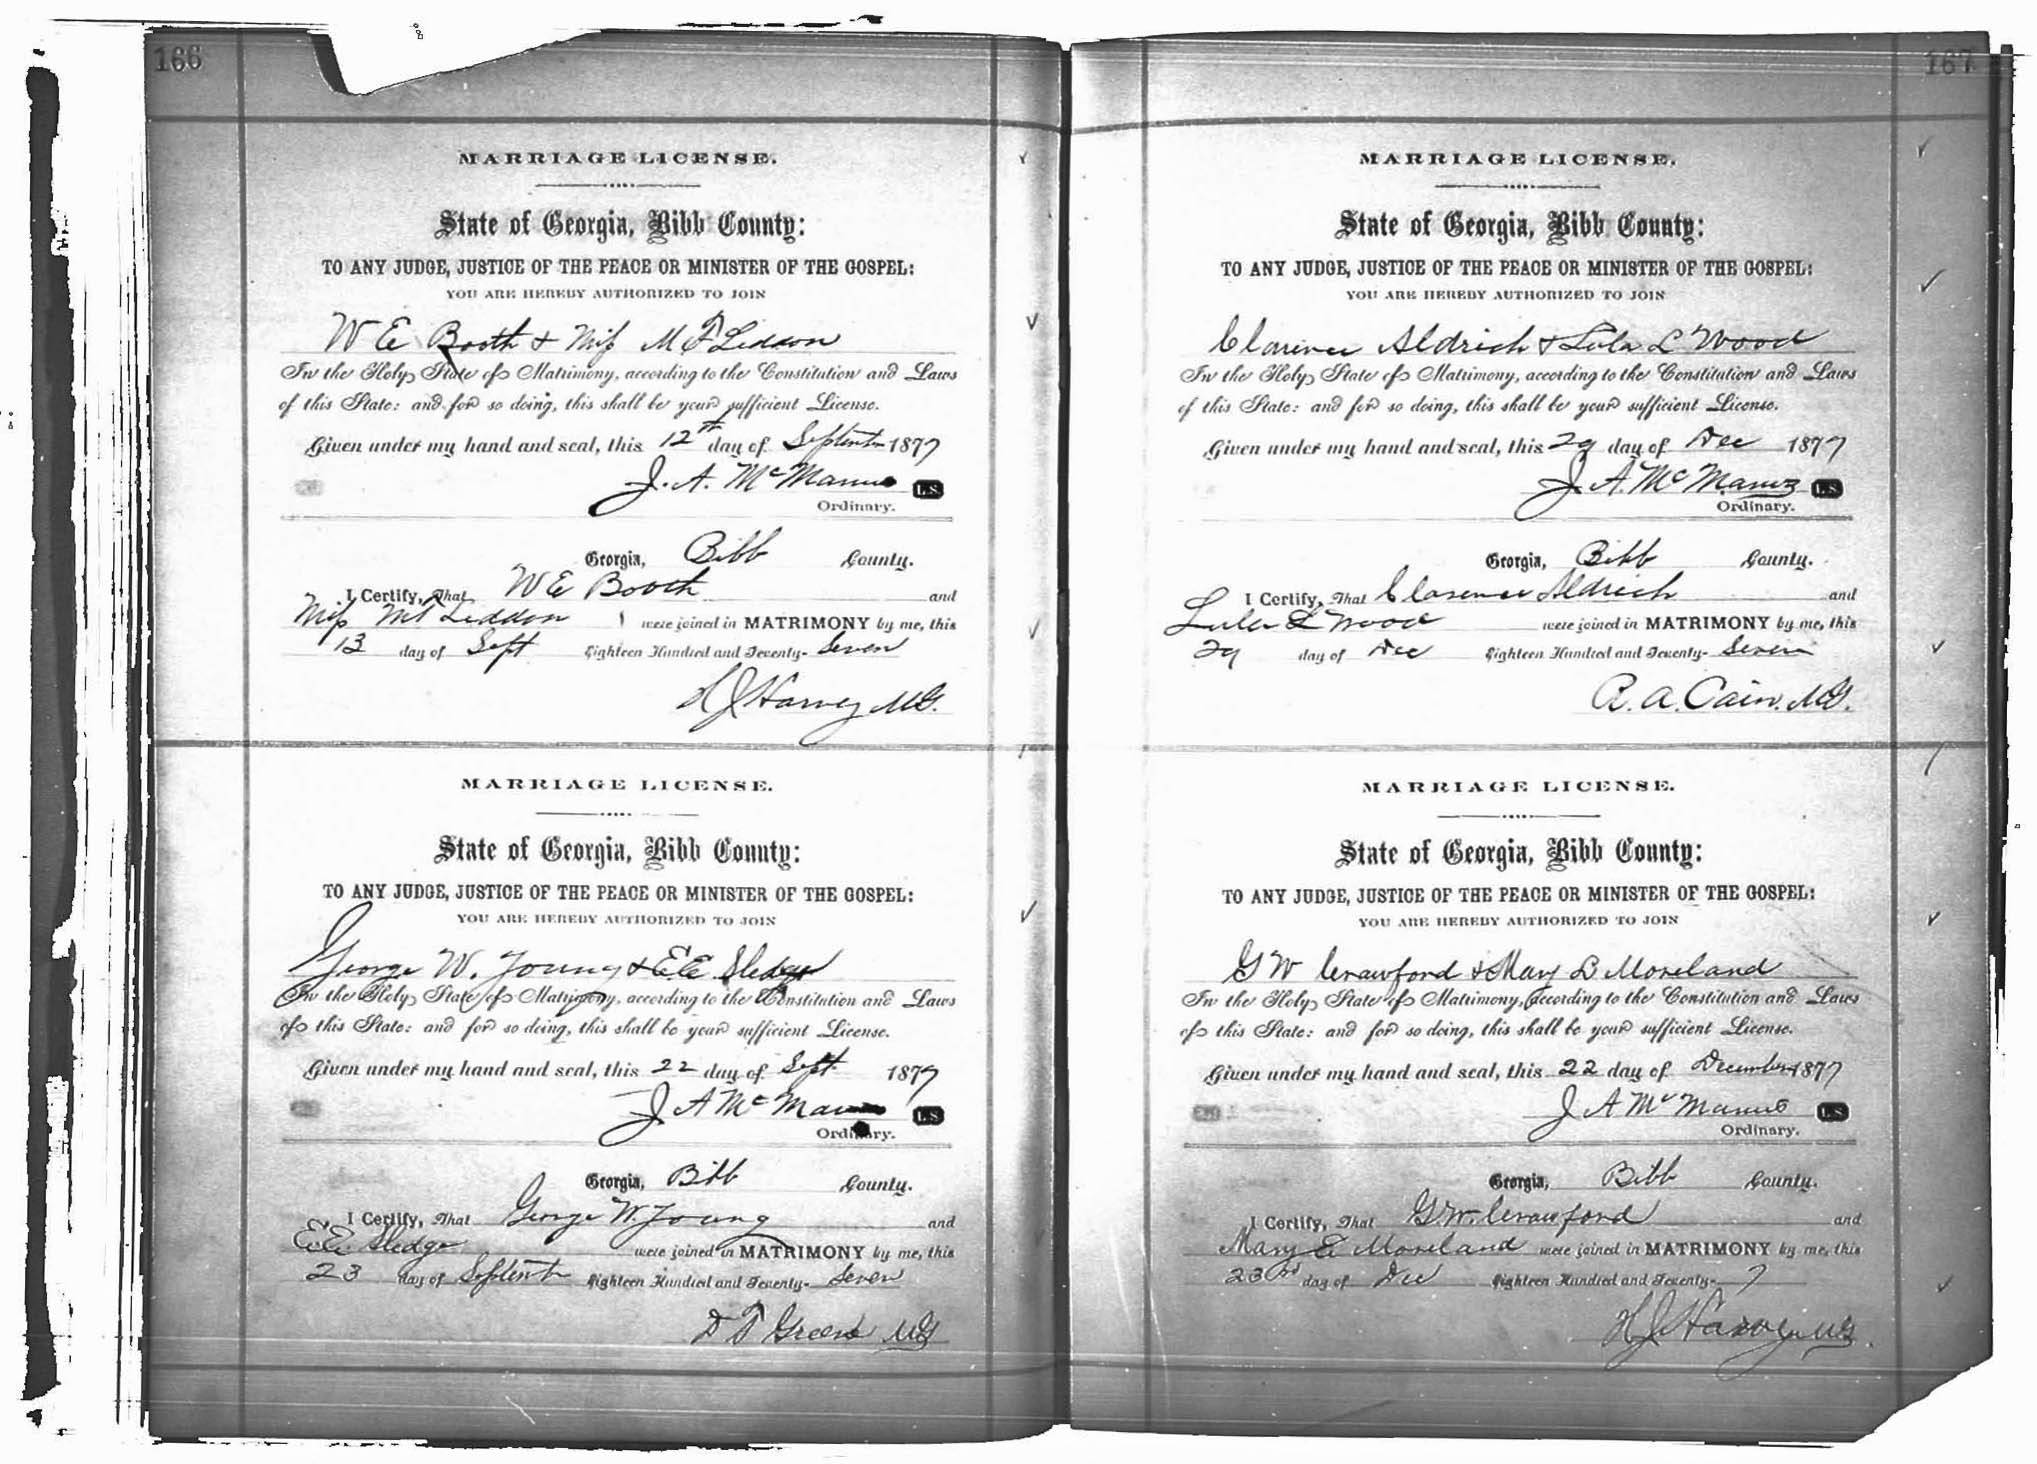 166
MARRIAGE LICENSE.
State of Georgia, Bibb County:
TO ANY JUDGE, JUSTICE OF THE PEACE OR MINISTER OF THE GOSPEL:
YOU ARE HEREBY AUTHORIZED TO JOIN
W E Booth & Miss M F Leddon
In the Holy State of Matrimony, according to the Constitution and Laws
of this State: and for so doing, this shall be your sufficient License.
Given under my hand and seal, this 12th day of Septembr 1877
J. A. McManus L.S.
Ordinary.
Georgia, Bibb County.
I Certify, That W E Booth and
Miss M F Leddon were joined in MATRIMONY by me, this
13 day of Sept Eighteen Hundred and Seventy- Seven
H J Harvey M.G.
MARRIAGE LICENSE.
State of Georgia, Bibb County:
TO ANY JUDGE, JUSTICE OF THE PEACE OR MINISTER OF THE GOSPEL:
YOU ARE HEREBY AUTHORIZED TO JOIN
George W. Young & E.E. Sledge
In the Holy State of Matrimony, according to the Constitution and Laws
of this State: and for so doing, this shall be your sufficient License.
Given under my hand and seal, this 22 day of Sept. 1877
J A McManus L.S.
Ordinary.
Georgia, Bibb County.
I Certify, That George W. Young and
E.E. Sledge were joined in MATRIMONY by me, this
23 day of Septembr Eighteen Hundred and Seventy- Seven
Green MG
167
MARRIAGE LICENSE.
State of Georgia, Bibb County:
TO ANY JUDGE, JUSTICE OF THE PEACE OR MINISTER OF THE GOSPEL:
YOU ARE HEREBY AUTHORIZED TO JOIN
Clarence Aldrich & Lula L Wood
In the Holy State of Matrimony, according to the Constitution and Laws
of this State: and for so doing, this shall be your sufficient License.
Given under my hand and seal, this 29 day of Dec 1877
J. A. McManus L.S.
Ordinary.
Georgia, Bibb County.
I Certify, That Clarence Aldrich and
Lula L Wood were joined in MATRIMONY by me, this
29 day of Dec Eighteen Hundred and Seventy- Seven
R. A. Cain. M.G.
MARRIAGE LICENSE.
State of Georgia, Bibb County:
TO ANY JUDGE, JUSTICE OF THE PEACE OR MINISTER OF THE GOSPEL:
YOU ARE HEREBY AUTHORIZED TO JOIN
G W Crawford & Mary Moreland
In the Holy State of Matrimony, according to the Constitution and Laws
of this State: and for so doing, this shall be your sufficient License.
Given under my hand and seal, this 22 day of December 1877
J A McManus L.S.
Ordinary.
Georgia, Bibb County.
I Certify, That G.W. Crawford and
Mary Moreland were joined in MATRIMONY by me, this
23rd day of Dec Eighteen Hundred and Seventy- 7
H J Harvey M.G.